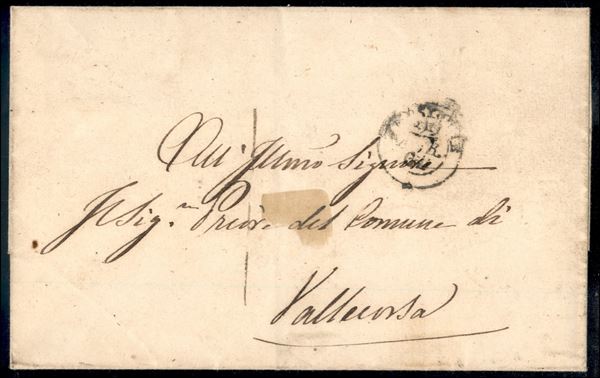 All' Illmo Signore
Il Sig.r Priore del Comune di
Vallecorsa